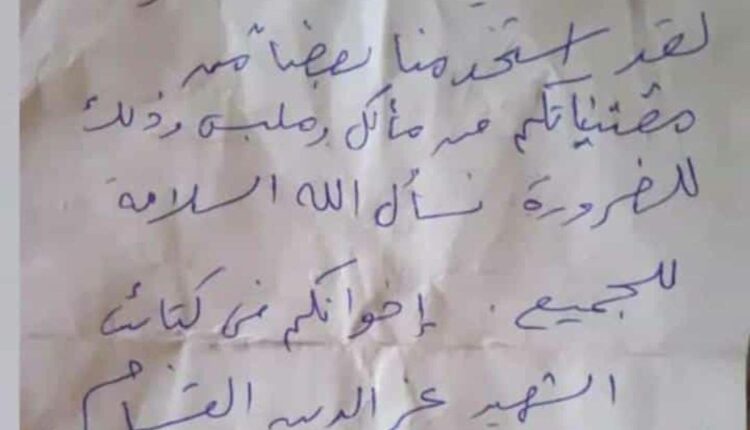 لقد استخدمنا بعضا من
مقتنياتكم من مأكل وملبس وذلك
للضرورة نسأل الله السلامة
للجميع . إخوانكم في كتائب
الشهيد عز الدين القسام